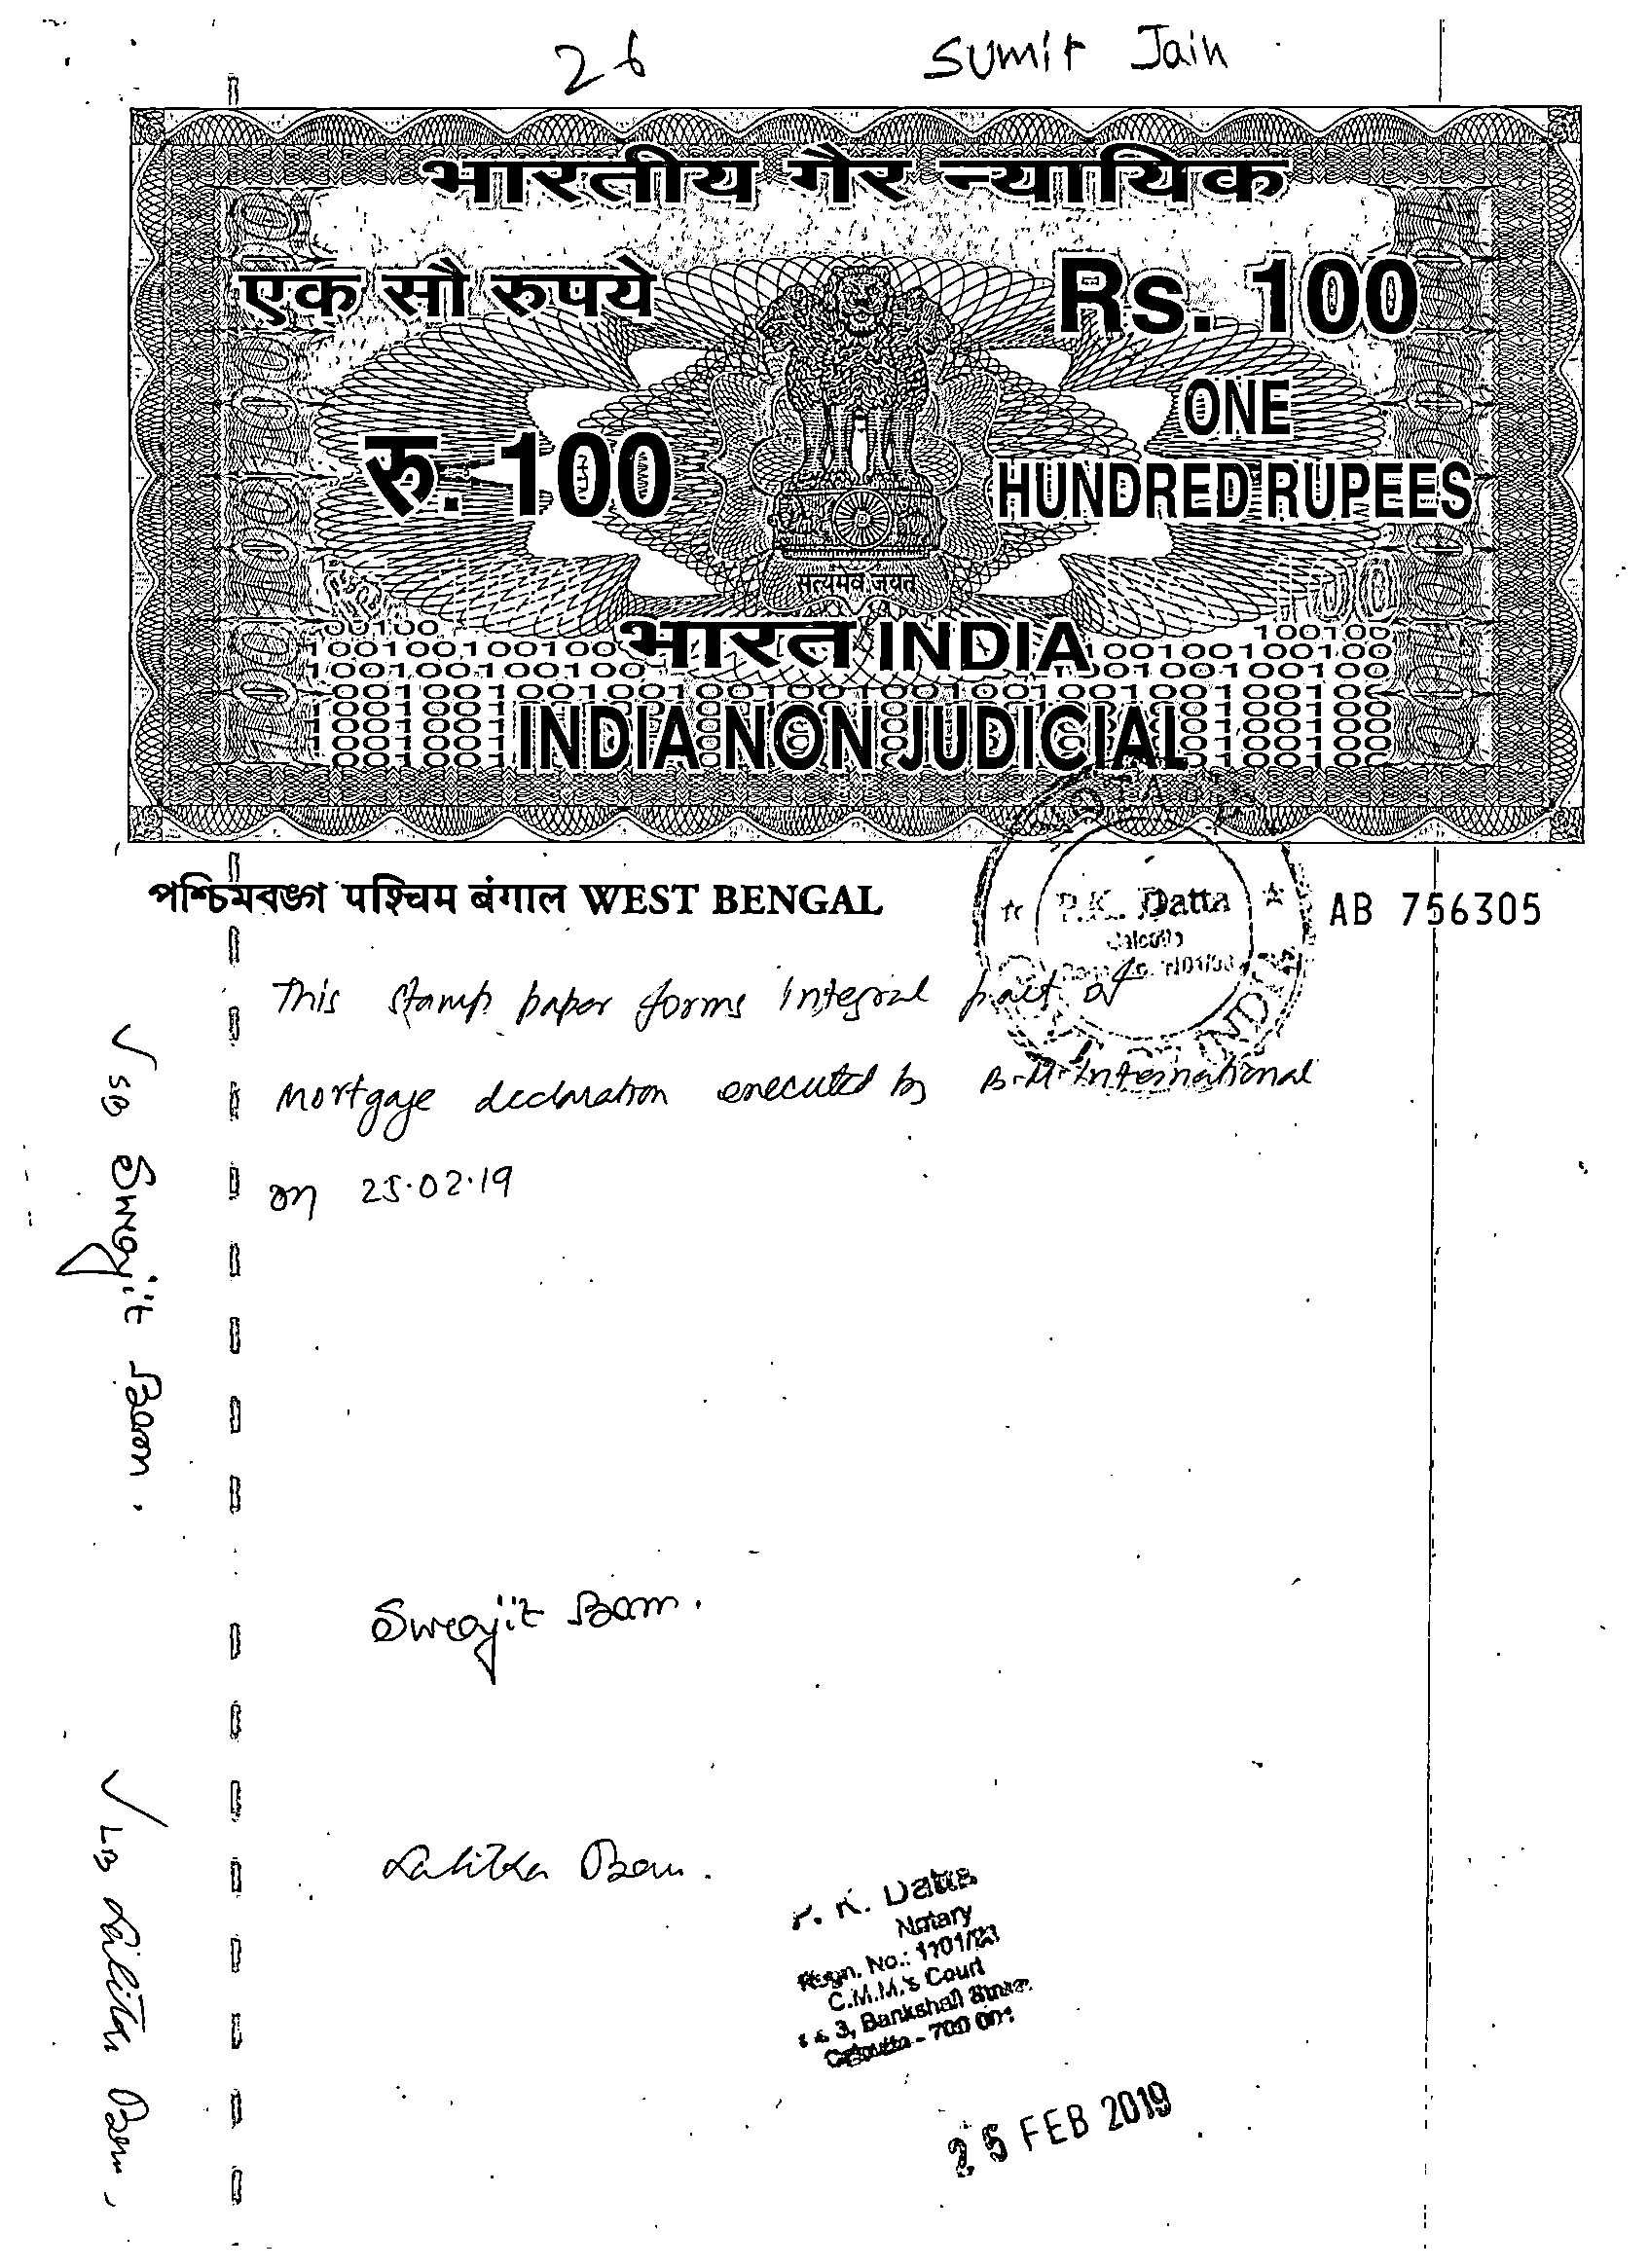 26 Sumit Jain
भारतीय गैर न्यायिक
एक सौ रुपये Rs. 100
रु. 100 ONE
HUNDRED RUPEES
सत्यमेव जयते
भारत INDIA
INDIA NON JUDICIAL
পশ্চিমবঙ্গ पश्चिम बंगाल WEST BENGAL AB 756305
P.K. Datta
This stamp paper forms Integral part of
Mortgage declaration executed by B.M. International
on 25.02.19
SB Swrajit Bam.
Swrajit Bam.
Lalitha Bam.
LB Lalitha Bam.
P. K. Datta
Notary
Regn. No.: 1101/
C.M.M.'s Court
3, Bankshall Street
Calcutta - 700 001
25 FEB 2019